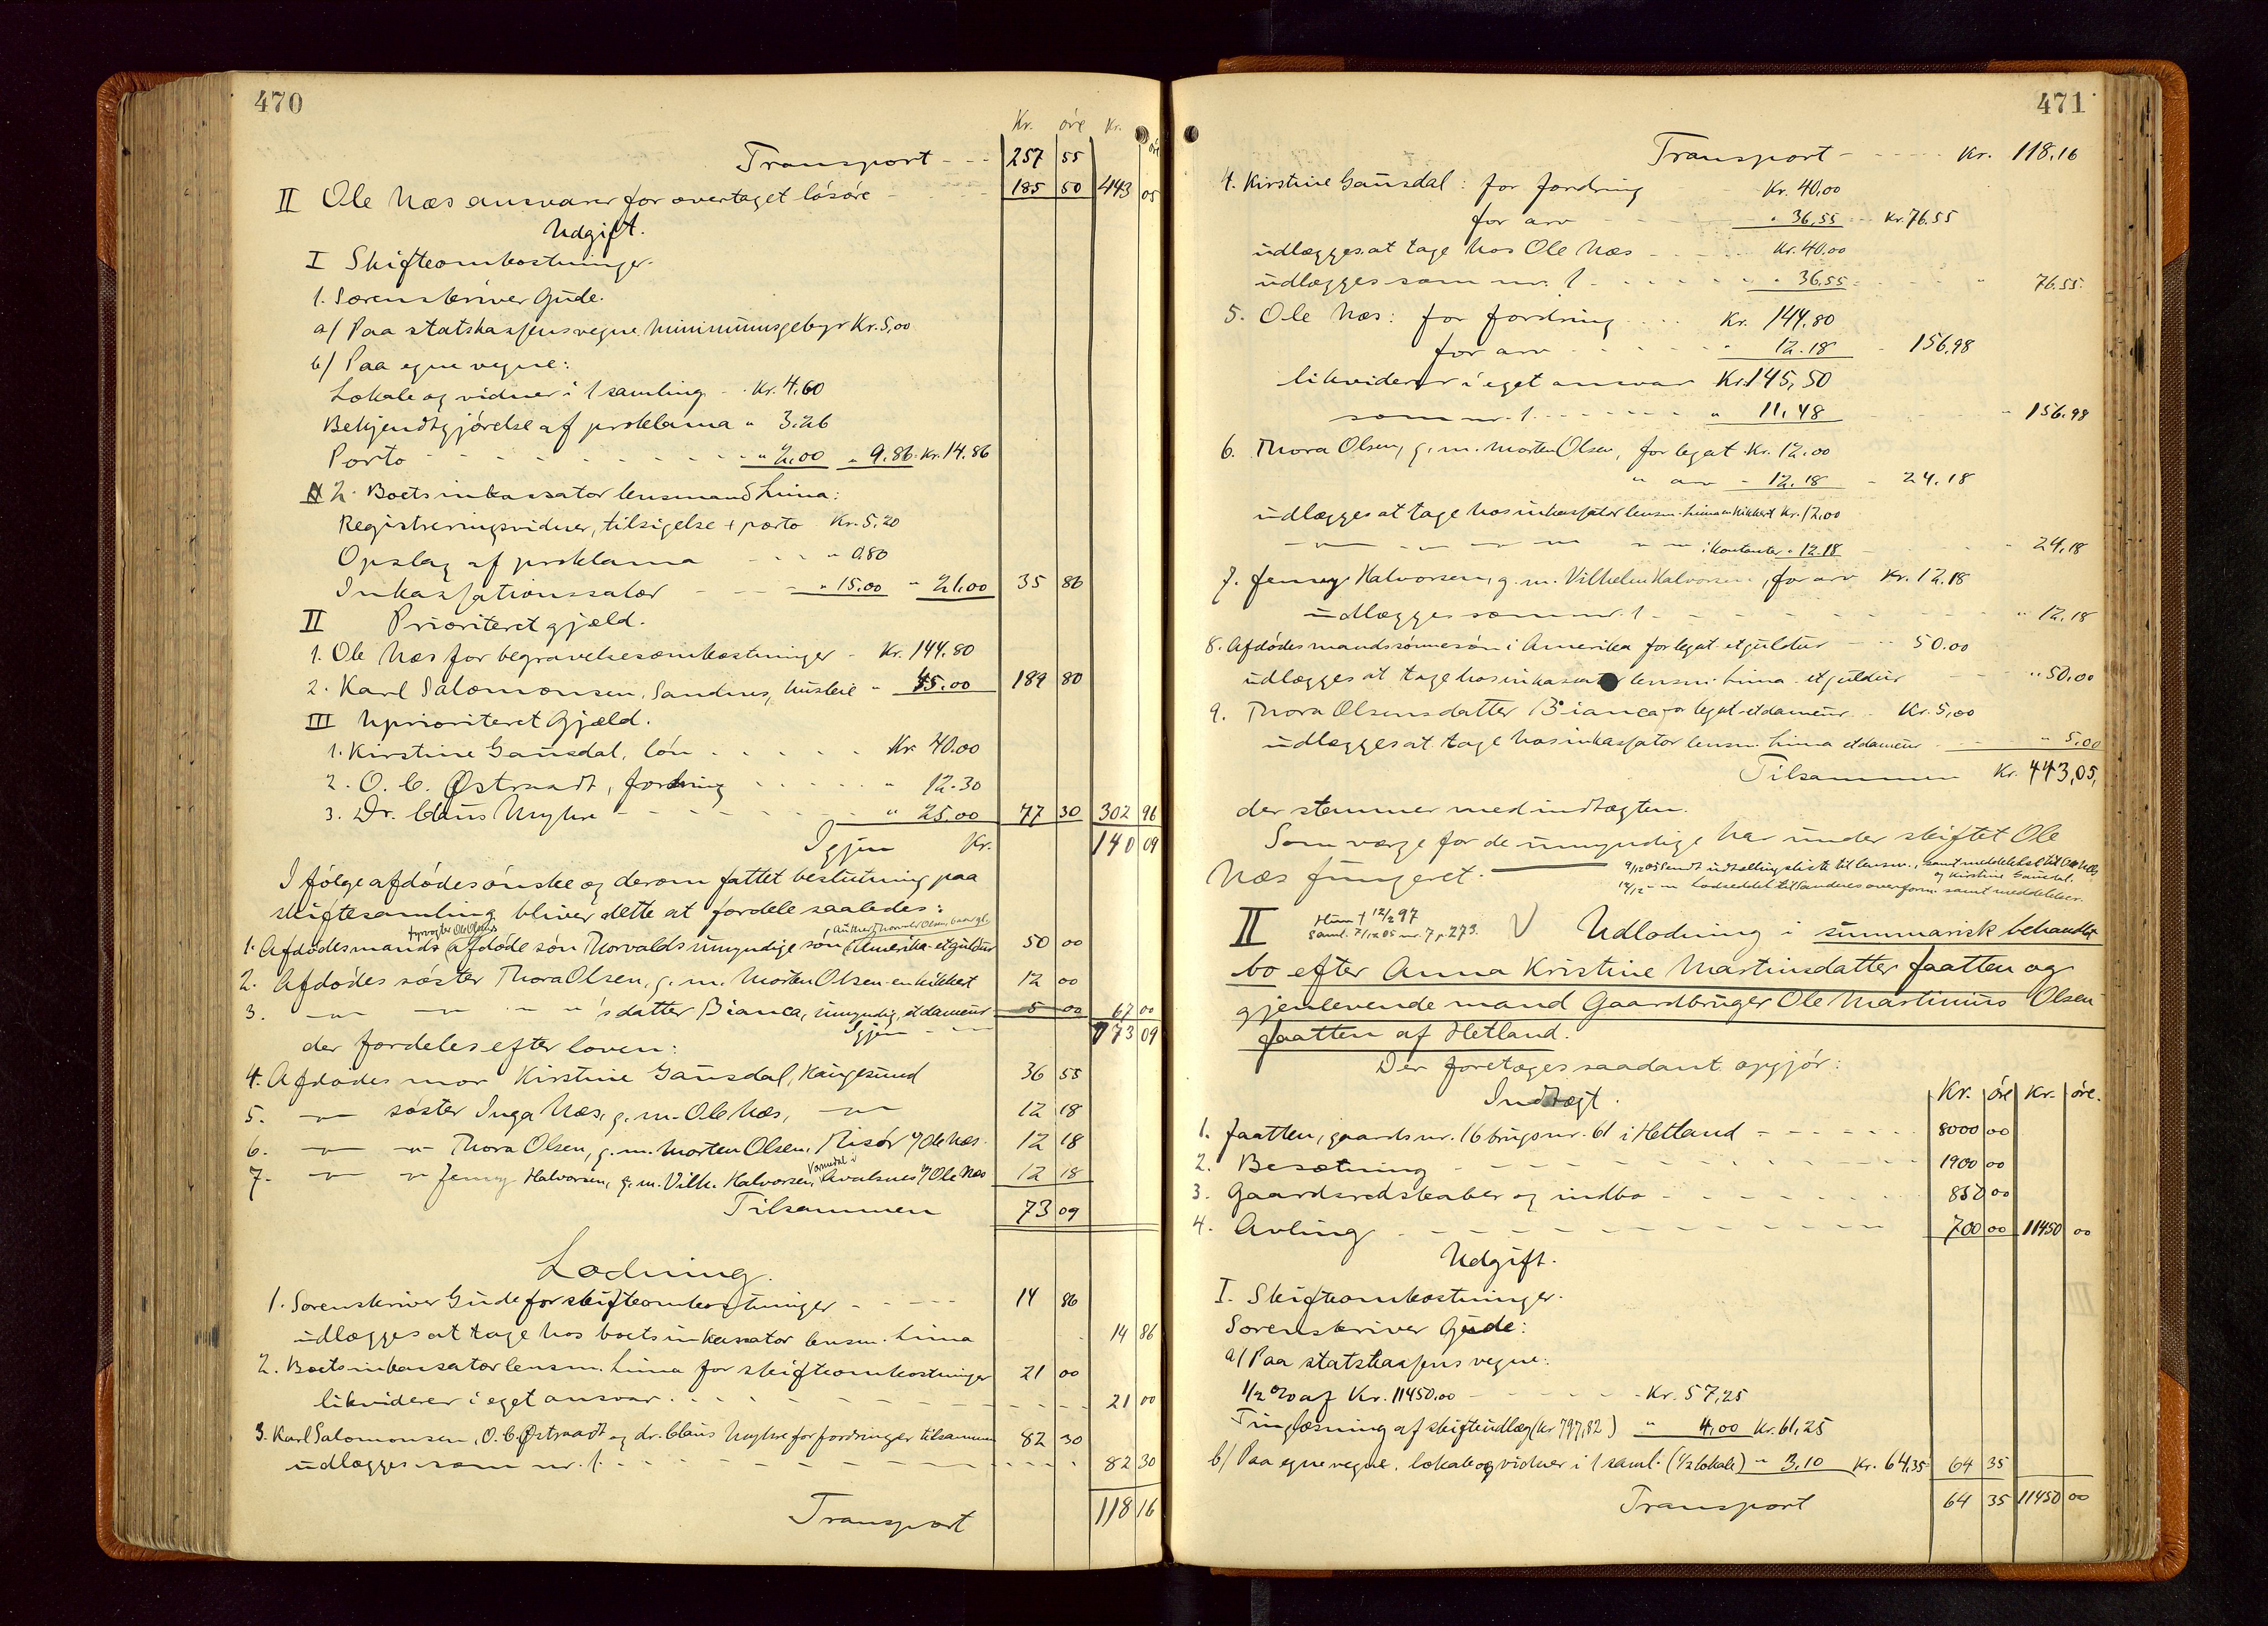 470
Kr. øre Kr. øre
Transport - - - 257 55
II Ole Næs ansvarer for overtaget løsøre - - - 185 50 443 05
Udgift.
I Skifteomkostninger.
1. Sorenskriver Gude.
a/ Paa statskassens vegne. Minimumsgebyr Kr. 5,00
b/ Paa egne vegne:
Lokale og vidner i 1 samling - Kr. 4,60
Bekjendtgjørelse af proklama " 3.26
Porto - - - " 2,00 " 9.86. Kr. 14.86
2. Boets inkassator lensmand Lima:
Registreringsvidner, tilsigelse + porto Kr. 5,20
Opslag af proklama - - " 0.80
Inkassationssalær - - - " 15,00 " 21,00 35 86
II Prioriteret gjæld.
1. Ole Næs for begravelsesomkostninger - Kr. 144.80
2. Karl Salomonsen, Sandnes, husleie " 45.00 189 80
III Uprioriteret Gjæld.
1. Kirstine Gausdal, løn - - - Kr. 40.00
2. O. C. Østraadt, fordring - - - " 12.30
3. Dr. Claus Myhre - - - " 25.00 77 30 302 96
Igjen Kr. 140 09
I følge afdødes ønske og derom fattet beslutning paa
skiftesamling bliver dette at fordele saaledes:
fyrvogter Ole Olsens
1. Afdødes mands afdøde søn Thorvalds umyndige søn i Amerika - et guldur 50 00
2. Afdødes søster Thora Olsen, g. m. Morten Olsen - en kikkert 12 00
3. -"- -"- -"- 's datter Bianca, umyndig, et dameur 5 00 67 00
der fordeles efter loven: Igjen - - 73 09
4. Afdødes mor Kirstine Gausdal, Haugesund 36 55
5. -"- søster Inga Næs, g. m. Ole Næs, -"- 12 18
6. -"- -"- Thora Olsen, g. m. Morten Olsen, Risør v/ Ole Næs. 12 18
7. -"- -"- Jenny Halvorsen, g. m. Vilh. Halvorsen, Avalsnes v/ Ole Næs 12 18
Tilsammen 73 09
Lodning.
1. Sorenskriver Gude for skifteomkostninger - - - 14 86
udlægges at tage hos boets inkassator lensm. Lima 14 86
2. Boets inkassator lensm. Lima for skifteomkostninger 21 00
likviderer i eget ansvar. - - - 21 00
3. Karl Salomonsen, O. C. Østraadt og dr. Claus Myhre for fordringer tilsammen 82 30
udlægges som nr. 1. - - - 82 30
Transport 118 16
471
Transport - - - Kr. 118,16
4. Kirstine Gausdal: for fordring Kr. 40,00
for arv - - - " 36,55 - - Kr. 76.55
udlægges at tage hos Ole Næs - - - Kr. 40.00
udlægges som nr. 1 - - - " 36,55 - - - " 76.55.
5. Ole Næs: for fordring - - - Kr. 144,80
for arv - - - " 12.18 - 156,98
likviderer i eget ansvar Kr. 145,50
som nr. 1 - - - " 11,48 - - - " 156.98
6. Thora Olsen, g. m. Morten Olsen, for legat Kr. 12.00
" arv - 12.18 - 24.18
udlægges at tage hos inkassator lensm. Lima en kikkert Kr. 12,00
-"- -"- -"- -"- -"- i kontanter " 12.18 - - - 24,18
7. Jenny Halvorsen, g. m. Vilhelm Halvorsen, for arv Kr. 12.18
udlægges som nr. 1 - - - " 12,18
8. Afdødes mands sønnesøn i Amerika for legat et guldur - - 50.00
udlægges at tage hos inkassator lensm. Lima et guldur - - " 50,00
9. Thora Olsens datter Bianca for legat et dameur - Kr. 5,00
udlægges at tage hos inkassator lensm. Lima et dameur - - " 5,00
Tilsammen Kr. 443,05,
der stemmer med indtægten.
Som værge for de umyndige har under skiftet Ole
Næs fungeret.
9/12 05 sendt udtællingsliste til lensm., samt meddelelse til Ole Næs
og Kirstine Gausdal.
II Hun † 12/2 97
Saml. 7/12 05 nr. 7 p. 273. V Udlodning i summarisk behandlet
bo efter Anna Kristine Martinsdatter Jaatten og
gjenlevende mand Gaardbruger Ole Martinius Olsen
Jaatten af Hetland.
Der foretages saadant opgjør:
Kr. øre Kr. øre.
Indtægt.
1. Jaatten, gaardsnr. 16 brugsnr. 61 i Hetland - - - 8000 00
2. Besætning - - - 1900 00
3. Gaardsredskaber og indbo - - - 850 00
4. Avling - - - 700 00 11450 00
Udgift.
I. Skifteomkostninger.
Sorenskriver Gude:
a/ Paa statskassens vegne:
1/2 % af Kr. 11450.00 - - - Kr. 57,25
Tinglæsning af skifteudlæg (Kr. 797,82) " 4,00 Kr. 61,25
b/ Paa egne vegne. Lokale og vidner i 1 saml. (1/2 lokale) " 3,10 Kr. 64,35 64 35
Transport 64 35 11450 00